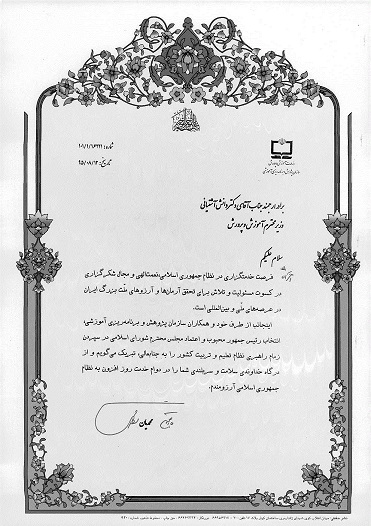 شماره: ۱۰۱/۱/۶۲۲۱
تاریخ: ۹۵/۰۸/۱۲
وزارت آموزش و پرورش
برادر ارجمند جناب آقای دکتر دانش آشتیانی
وزیر محترم آموزش و پرورش
سلام علیکم
فرصت خدمتگزاری در نظام جمهوری اسلامی، نعمت الهی و مجال شکرگزاری
در کسوت مسئولیت و تلاش برای تحقق آرمان‌ها و آرزوهای ملت بزرگ ایران
در عرصه‌های ملّی و بین‌المللی است.
اینجانب از طرف خود و همکاران سازمان پژوهش و برنامه‌ریزی آموزشی،
انتخاب رئیس جمهور محبوب و اعتماد مجلس محترم شورای اسلامی در سپردن
زمام راهبری نظام تعلیم و تربیت کشور را به جنابعالی، تبریک می‌گویم و از
درگاه خداوندی سلامت و سربلندی شما را در دوام خدمت روز افزون به نظام
جمهوری اسلامی آرزومندم.